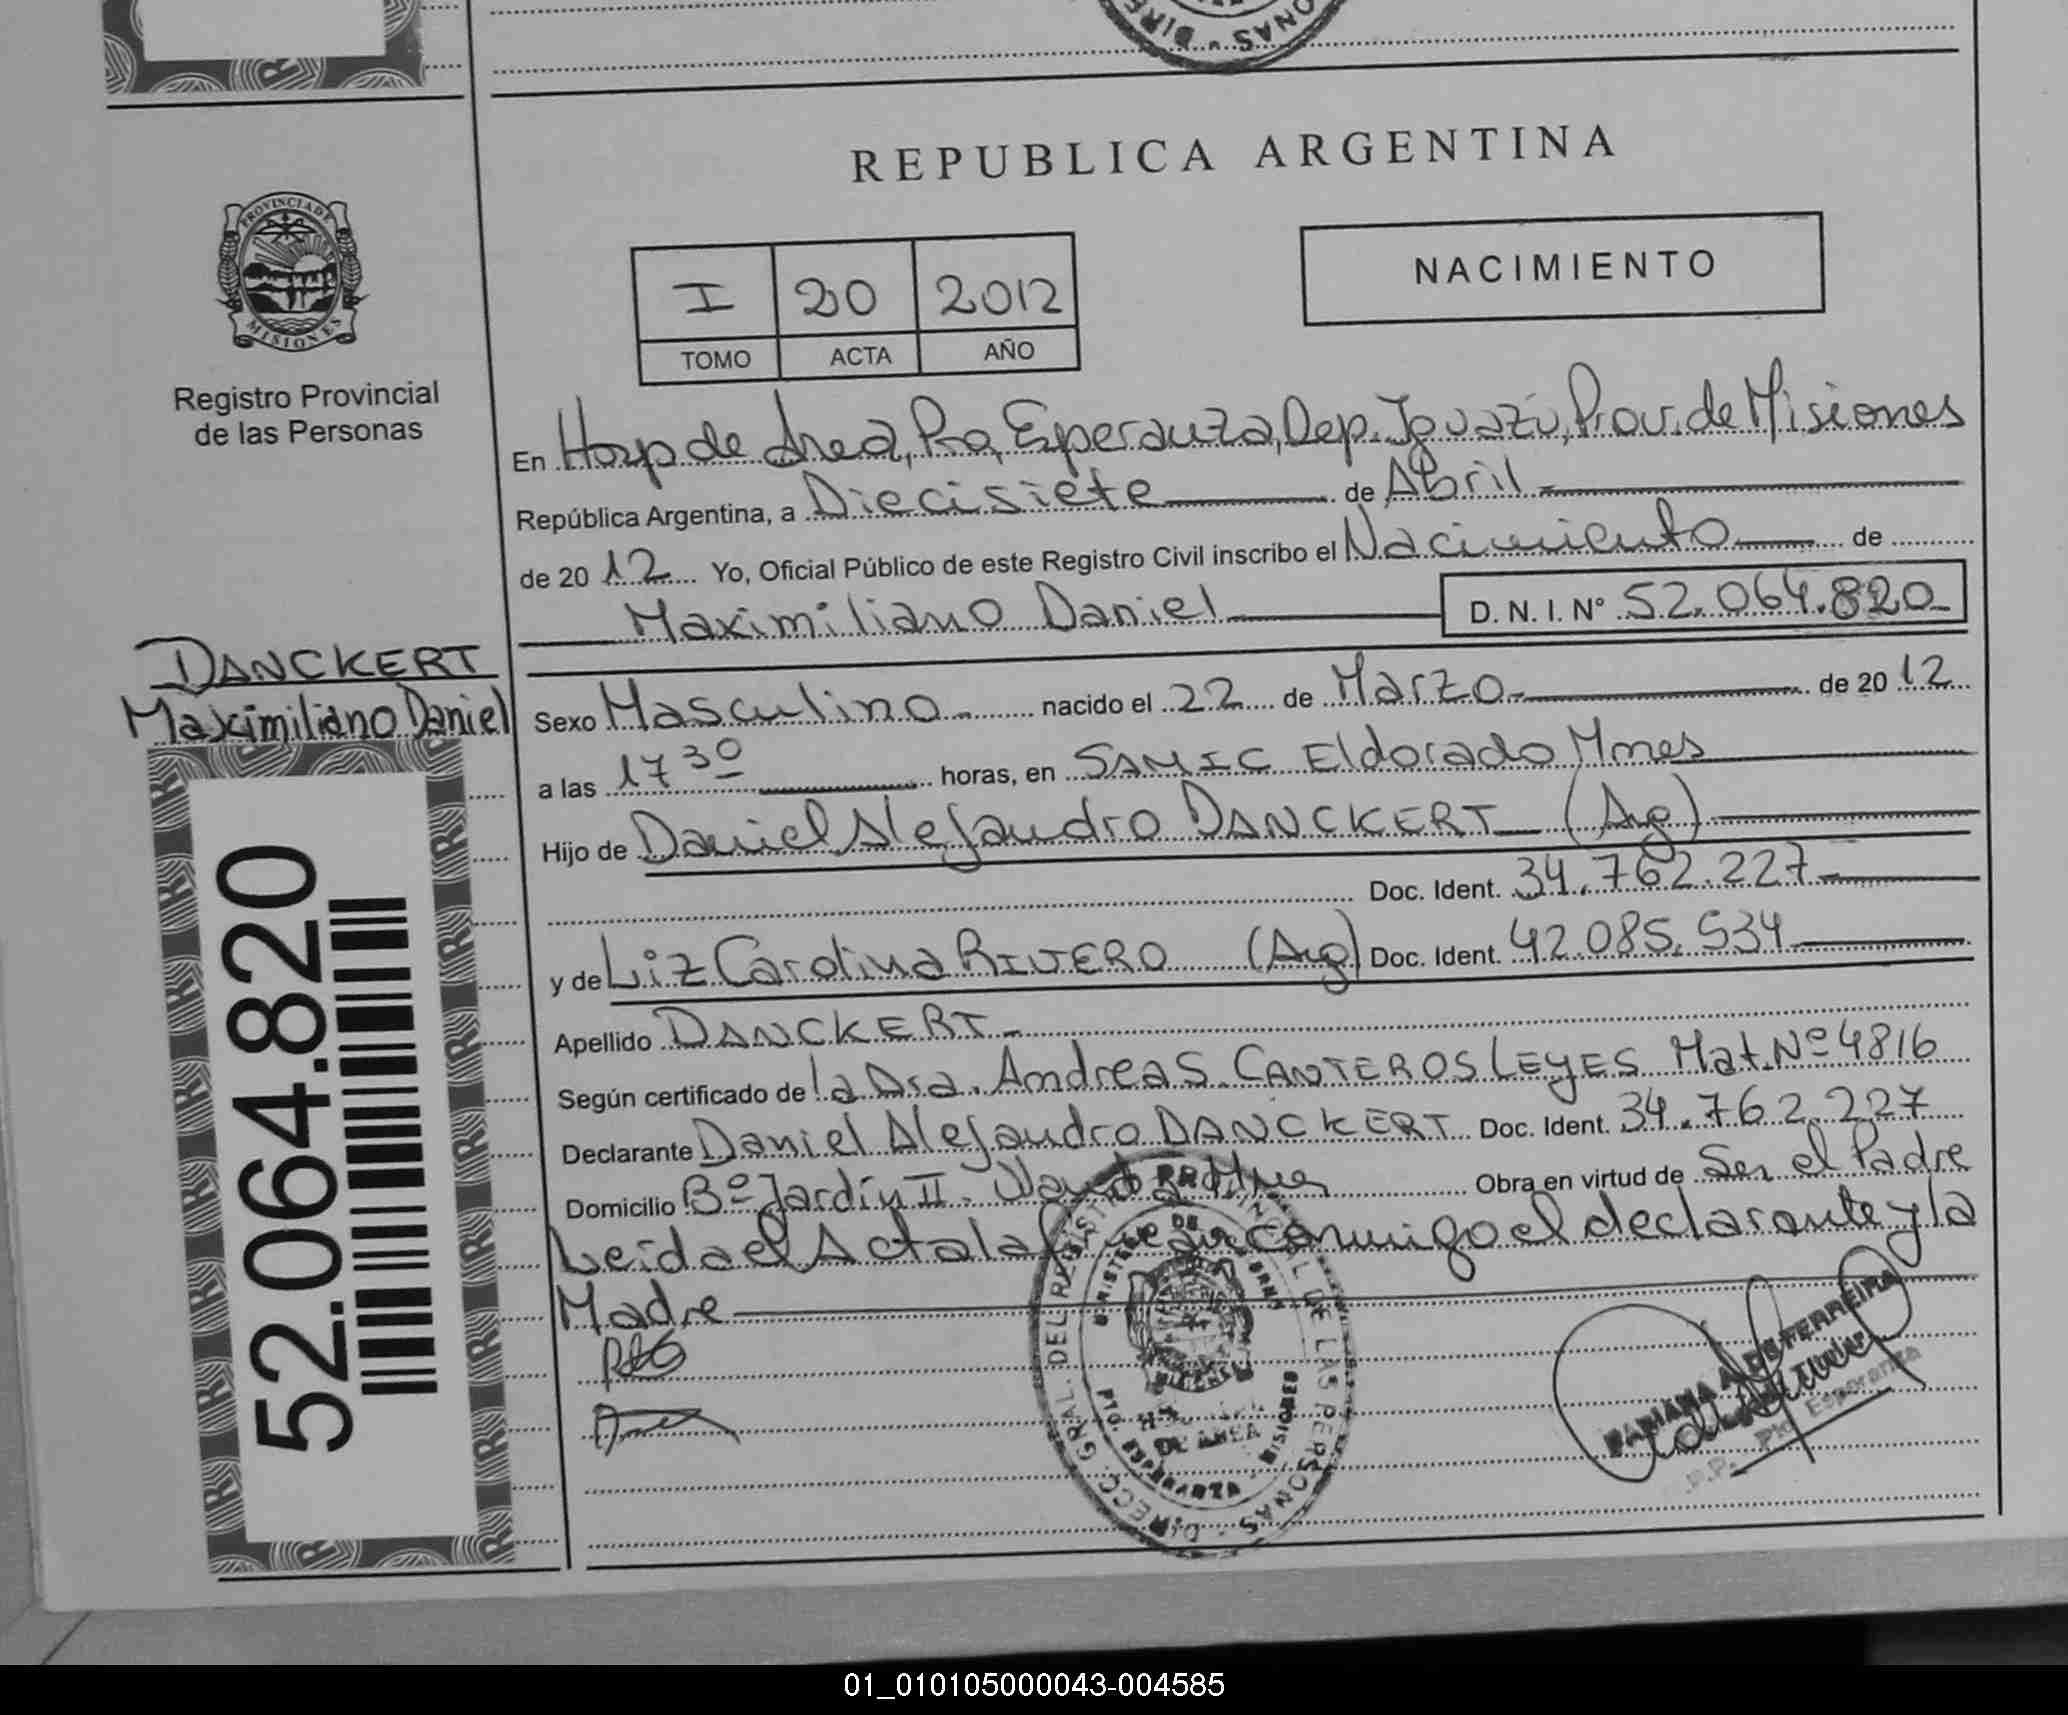 REPUBLICA ARGENTINA
PROVINCIA DE
MISIONES
Registro Provincial
de las Personas
I 20 2012
TOMO ACTA AÑO
NACIMIENTO
En Hosp de Area, Pto Esperanza, Dep. Iguazú, Prov. de Misiones
República Argentina, a Diecisiete de Abril
de 2012 Yo, Oficial Público de este Registro Civil inscribo el Nacimiento de
Maximiliano Daniel D. N. I. N° 52.064.820
DANCKERT
Maximiliano Daniel
Sexo Masculino nacido el 22 de Marzo de 2012
a las 17 30 horas, en SAMIC Eldorado Mnes
Hijo de Daniel Alejandro DANCKERT (Arg)
Doc. Ident. 34.762.227
y de Liz Carolina RIVERO (Arg) Doc. Ident. 42.085.534
Apellido DANCKERT
Según certificado de la Dra. Andrea S. CANTEROS LEYES Mat. Nº 4816
Declarante Daniel Alejandro DANCKERT Doc. Ident. 34.762.227
Domicilio Bº Jardín II - Obra en virtud de Ser el Padre
Leida el Acta la conmigo el declarante y la
Madre
52.064.820
DIRECC. GRAL. DEL REGISTRO PROVINCIAL DE LAS PERSONAS
DE AREA
PTO. ESPERANZA - MISIONES
Pto Esperanza
01_010105000043-004585